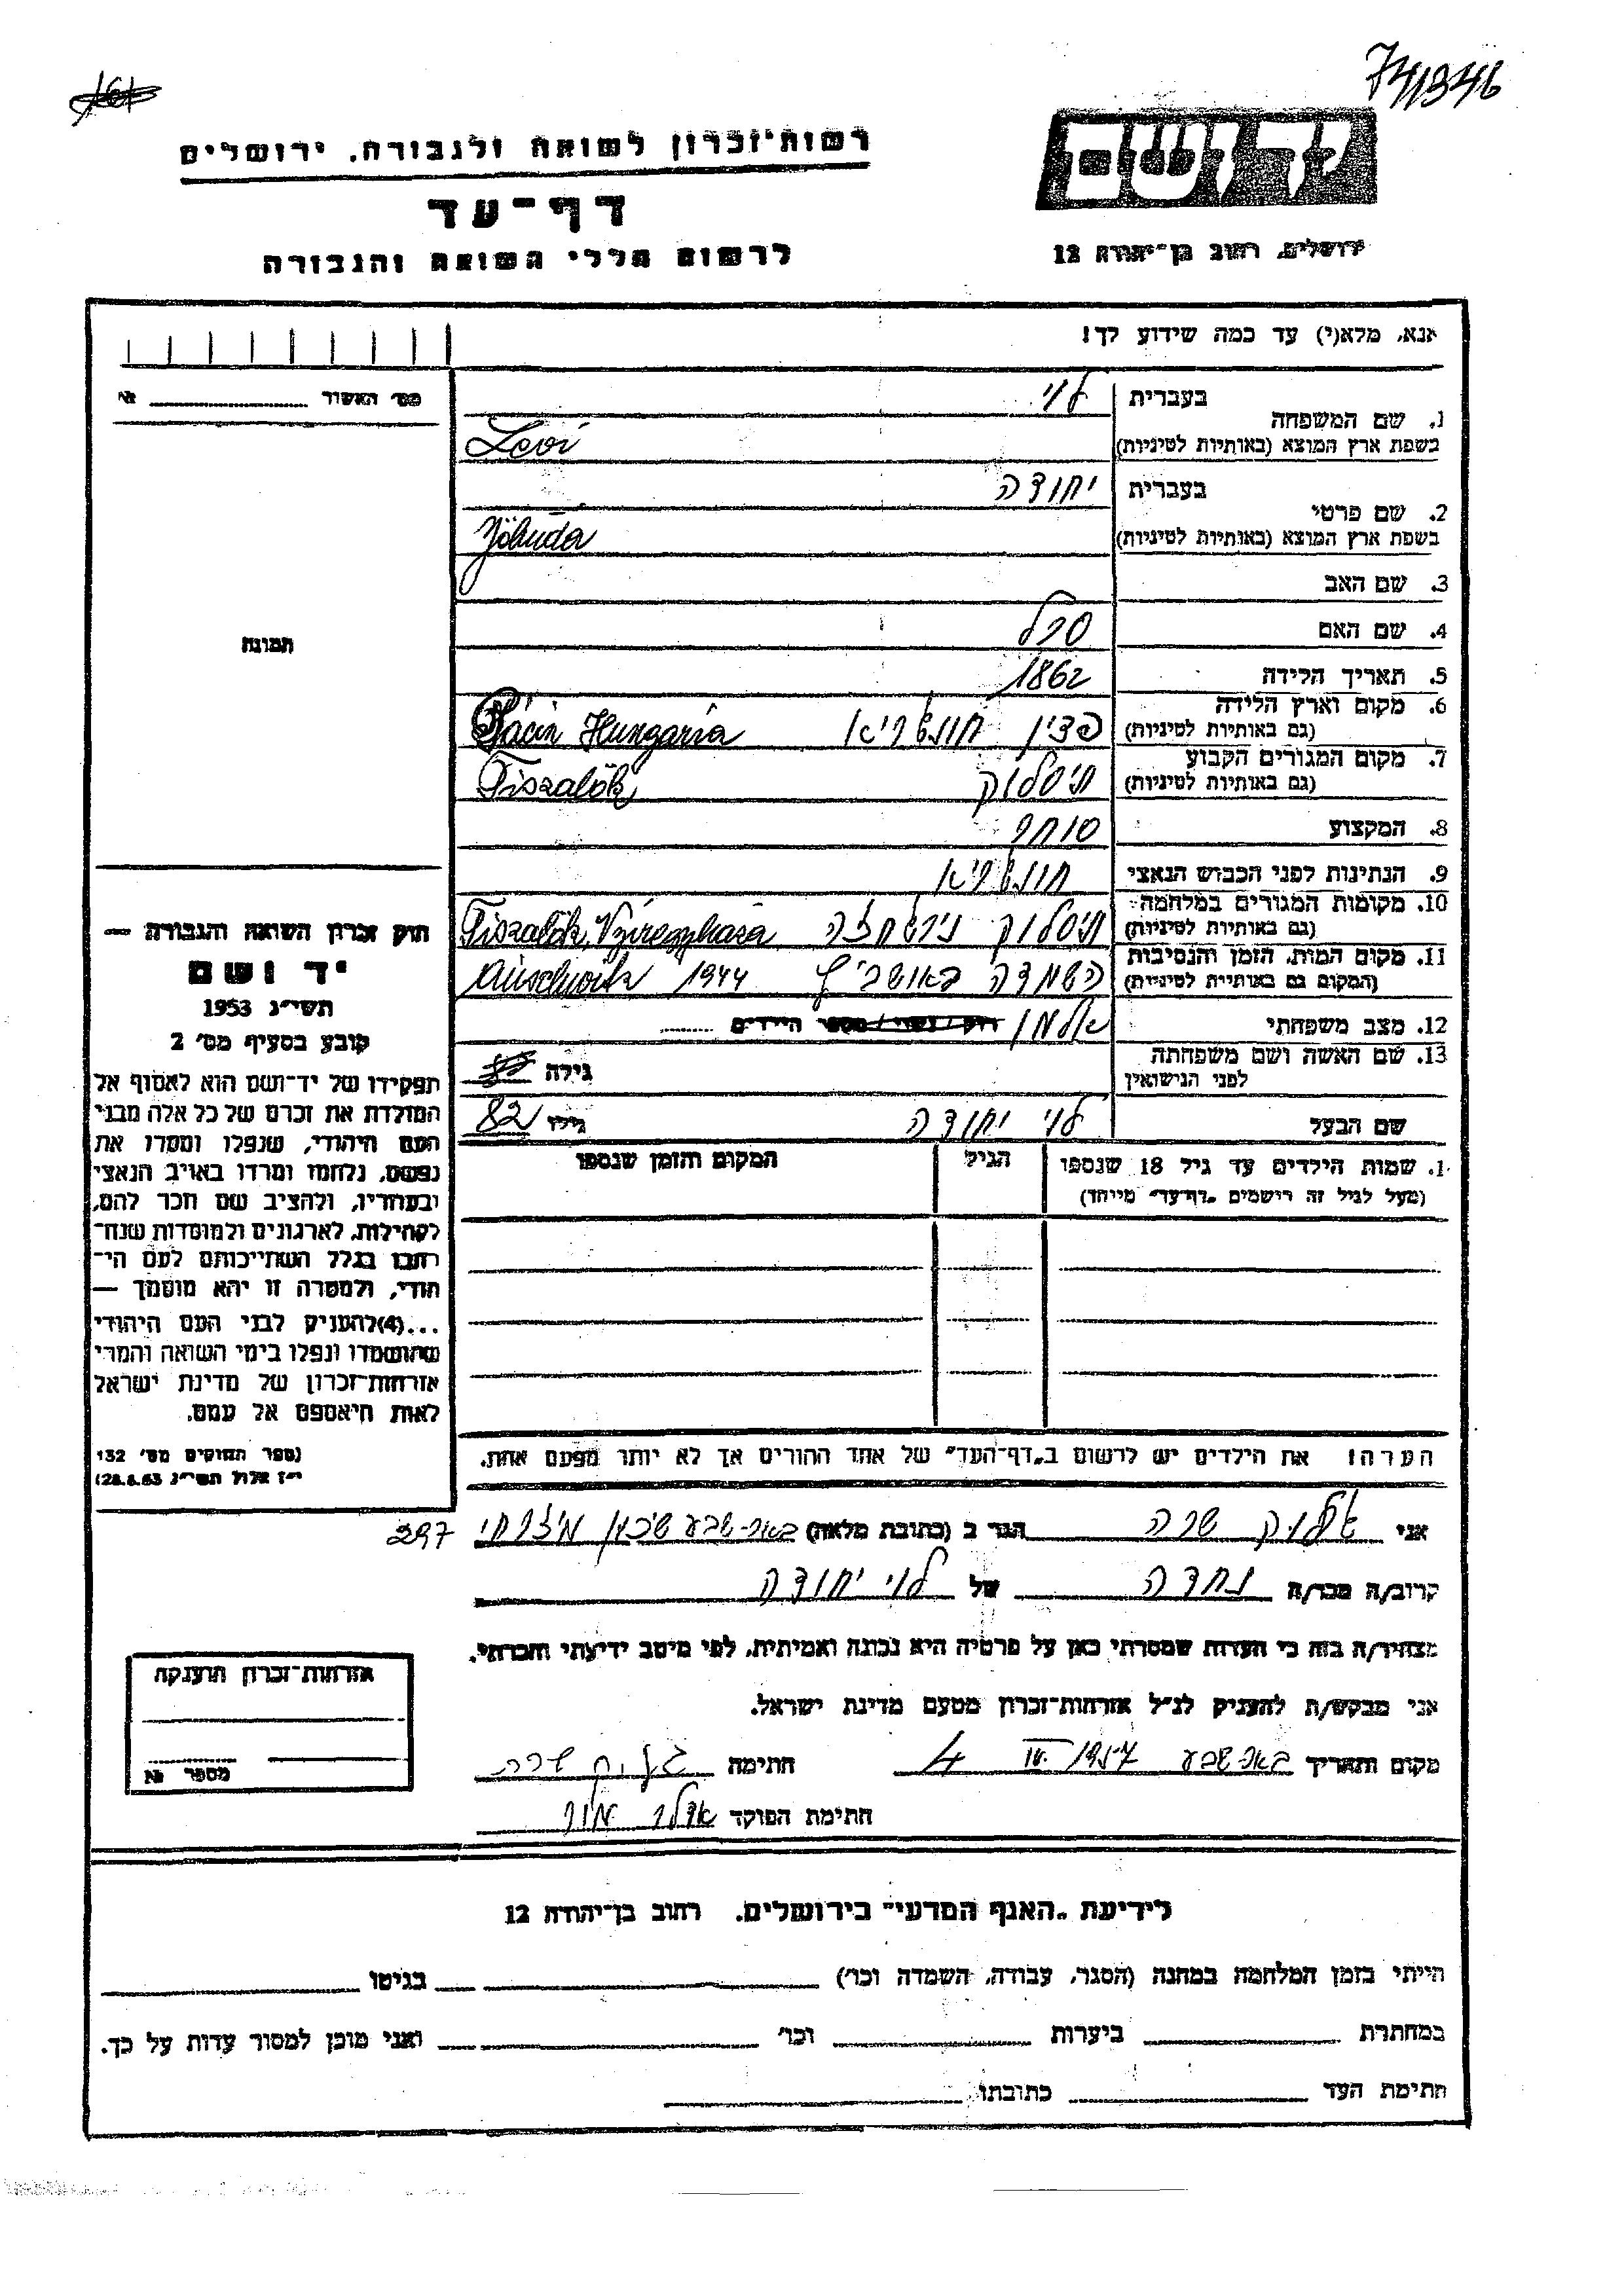 741346
רשות־זכרון לשואה ולגבורה, ירושלים
יד ושם
דף־עד
לרשום חללי השואה והגבורה
ירושלים, רחוב בן־יהודה 12
אנא, מלא(י) עד כמה שידוע לך!
מס׳ האשור №
1. שם המשפחה
בעברית לוי
בשפת ארץ המוצא (באותיות לטיניות) Levi
2. שם פרטי
בעברית יהודה
בשפת ארץ המוצא (באותיות לטיניות) Jöhuda
3. שם האב
4. שם האם פרל
תמונה
5. תאריך הלידה 1862
6. מקום וארץ הלידה
(גם באותיות לטיניות) פצין הונגריא Pácin Hungaria
7. מקום המגורים הקבוע
(גם באותיות לטיניות) תיסלוק Tiszalök
8. המקצוע סוחר
9. הנתינות לפני הכבוש הנאצי הונגריא
10. מקומות המגורים במלחמה
(גם באותיות לטיניות) תיסלוק נירגהאזה Tiszalök, Nyiregyhaza
11. מקום המות, הזמן והנסיבות
(המקום גם באותיות לטיניות) השמדה באושביץ 1944 Auschwitz
12. מצב משפחתי אלמן רוק / נשוי / מספר הילדים
13. שם האשה ושם משפחתה
לפני הנישואין
גילה
שם הבעל לוי יהודה גילו 82
חוק זכרון השואה והגבורה —
יד ושם
תשי״ג 1953
קובע בסעיף מס׳ 2
תפקידו של יד־ושם הוא לאסוף אל
המולדת את זכרם של כל אלה מבני
העם היהודי, שנפלו ומסרו את
נפשם, נלחמו ומרדו באויב הנאצי
ובעוזריו, ולהציב שם וזכר להם,
לקהילות, לארגונים ולמוסדות שנח־
רבו בגלל השתייכותם לעם הי־
הודי, ולמטרה זו יהא מוסמך —
...(4)להעניק לבני העם היהודי
שהושמדו ונפלו בימי השואה והמרי
אזרחות־זכרון של מדינת ישראל
לאות היאספם אל עמם.
(ספר החוקים מס׳ 132
י״ז אלול תשי״ג 28.8.53)
1. שמות הילדים עד גיל 18 שנספו
(מעל לגיל זה רישמים „דף־עד״ מייחד)
הגיל
המקום והזמן שנספו
הערה! את הילדים יש לרשום ב„דף־העד״ של אחד ההורים אך לא יותר מפעם אחת.
אני שרה הגר ב (כתובת מלאה) באר־שבע שיכון מיזרחי 397
קרוב/ה מכר/ה נכדה של לוי יהודה
מצהיר/ה בזה כי העדות שמסרתי כאן על פרטיה היא נכונה ואמיתית, לפי מיטב ידיעתי והכרתי.
אני מבקש/ת להעניק לנ״ל אזרחות־זכרון מטעם מדינת ישראל.
מקום ותאריך באר שבע חתימה שרה
חתימת הפוקד אדלר
אזרחות־זכרון הוענקה
מספר №
לידיעת „האגף המדעי״ בירושלים. רחוב בן־יהודה 12
הייתי בזמן המלחמה במחנה (הסגר, עבודה, השמדה וכו׳) בגיטו
במחתרת ביערות וכו׳ ואני מוכן למסור עדות על כך.
חתימת העד כתובתו